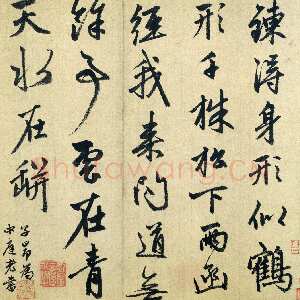 鍊得身形似鶴
形千株松下兩函
經我來問道無
餘事雲在青
天水在缾
子昂為
老書